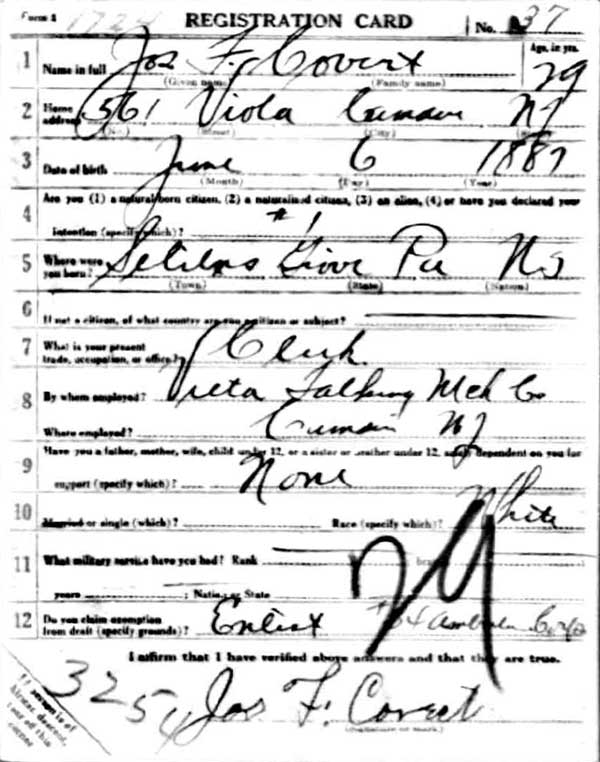 Form 1 1724 REGISTRATION CARD No. 37
1 Name in full Jos F. Covert Age, in yrs.
(Given name) (Family name) 29
2 Home address 561 Viola Camden NJ
(No.) (Street) (City)
3 Date of birth June 6 1887
(Month) (Day) (Year)
4 Are you (1) a natural born citizen, (2) a naturalized citizen, (3) an alien, (4) or have you declared your
intention (specify which)? #1
5 Where were you born? Selins Grove Pa
(Town) (State) (Nation)
6 If not a citizen, of what country are you a citizen or subject?
7 What is your present trade, occupation, or office? Clerk
8 By whom employed? Victa Talking Mch Co
Where employed? Camden NJ
9 Have you a father, mother, wife, child under 12, or a sister or brother under 12, solely dependent on you for
support (specify which)? None
10 Married or single (which)? Race (specify which)? White
11 What military service have you had? Rank branch
years ; Nation or State
29
12 Do you claim exemption from draft (specify grounds)? Enlist Corps
I affirm that I have verified above answers and that they are true.
3254 Jos F. Covert
(Signature or mark)
If person is of African descent, tear off this corner